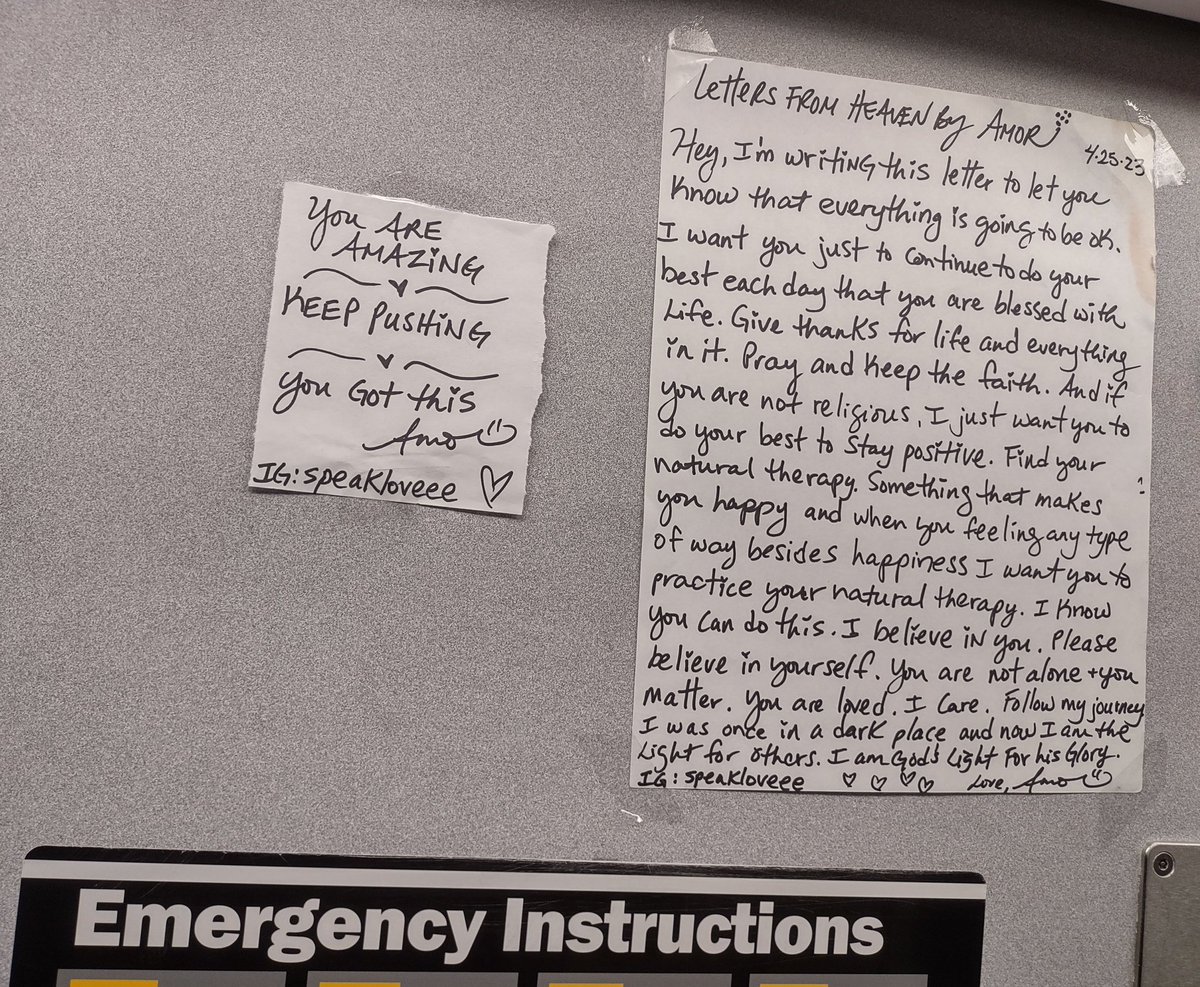 You ARE
AMAZING
KEEP PUSHING
You Got this
Amor
IG: speakloveee
Letters FROM HEAVEN By AMOR
4.25.23
Hey, I'm writing this letter to let you
know that everything is going to be ok.
I want you just to continue to do your
best each day that you are blessed with
Life. Give thanks for life and everything
in it. Pray and keep the faith. And if
you are not religious, I just want you to
do your best to Stay positive. Find your
natural therapy. Something that makes
you happy and when you feeling any type
of way besides happiness I want you to
practice your natural therapy. I know
you can do this. I believe in you. Please
believe in yourself. You are not alone + you
matter. You are loved. I care. Follow my journey
I was once in a dark place and now I am the
Light for others. I am God's Light For his Glory.
IG: speakloveee Love, Amor
Emergency Instructions